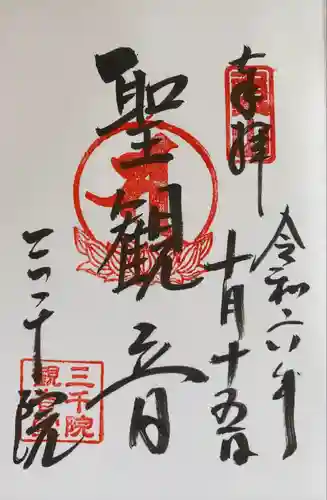 奉拝
令和六年
十月十五日
聖観音
三千院
三千院
観音堂